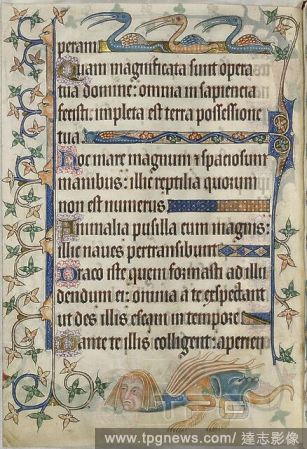 peram
Quam magnificata sunt opera
tua domine: omnia in sapiencia
fecisti: impleta est terra possessione
tua.
Hoc mare magnum & spaciosum
manibus: illic reptilia quorum
non est numerus
Animalia pusilla cum magnis:
ic naues pertransibunt
Draco iste quem formasti ad illu
dendum ei: omnia a te expectant
ut des illis escam in tempore
Dante te illis colligent: aperien
TPG
www.tpgnews.com/ 達志影像